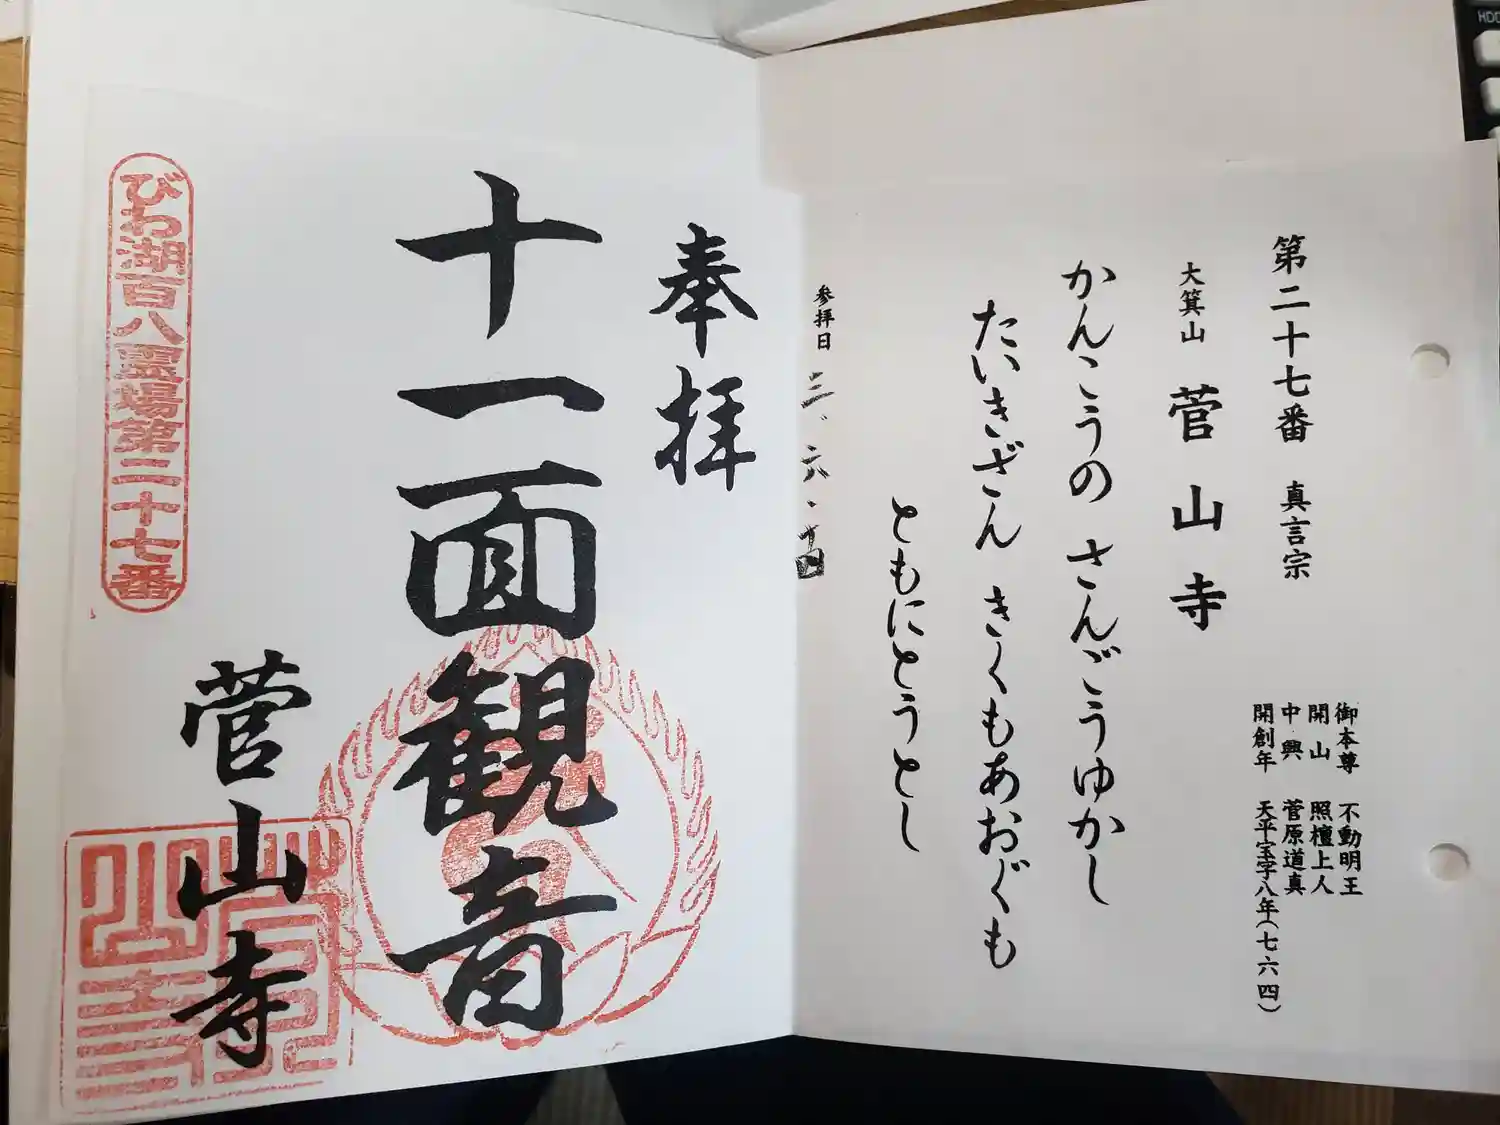 第二十七番 真言宗
御本尊 不動明王
開山 照檀上人
中興 菅原道真
開創年 天平宝字八年(七六四)
大箕山 菅山寺
かんこうの さんごうゆかし
たいきざん きくもあおぐも
ともにとうとし
参拝日 三、六、
奉拝
十一面観音
菅山寺
びわ湖百八霊場第二十七番